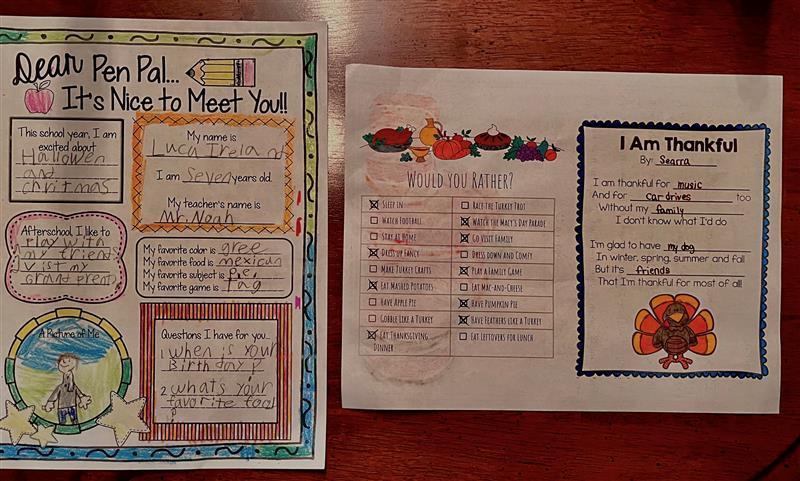 Dear Pen Pal...
It's Nice to Meet You!!
This school year, I am
excited about
Hallowen
and
chritmas
My name is
Luca Ireland
I am Seven years old.
My teacher's name is
Mr. Noah
Afterschool, I like to
play with
my friends
v ist my
grand prents
My favorite color is gree
My favorite food is mexican
My favorite subject is p.e.
My favorite game is Tag
A Picture of Me
Questions I have for you...
1 when is your
Birthday?
2 whats your
favorite
?
Would You Rather?
Sleep in
Race the Turkey Trot
Watch Football
Watch the Macy's Day Parade
Stay at Home
Go Visit Family
Dress up Fancy
Dress Down and Comfy
Make Turkey Crafts
Play a Family Game
Eat Mashed Potatoes
Eat Mac-and-Cheese
Have Apple Pie
Have Pumpkin Pie
Gobble Like a Turkey
Have Feathers Like a Turkey
Eat Thanksgiving
Dinner
Eat Leftovers for Lunch
I Am Thankful
By: Searra
I am thankful for music
And for car drives too
Without my family
I don't know what I'd do
I'm glad to have my dog
In winter, spring, summer and fall
But it's friends
That I'm thankful for most of all!